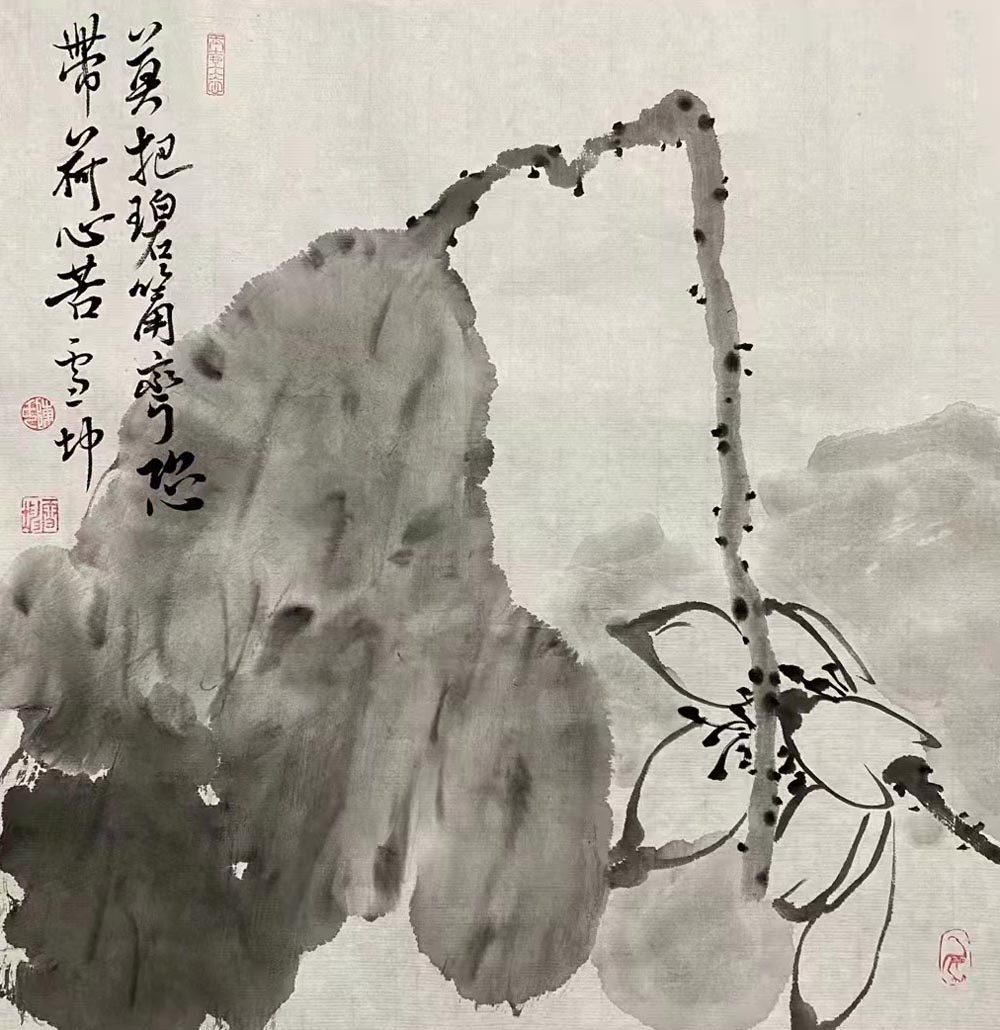 莫把碧筩弯恐
帶荷心苦雪坤